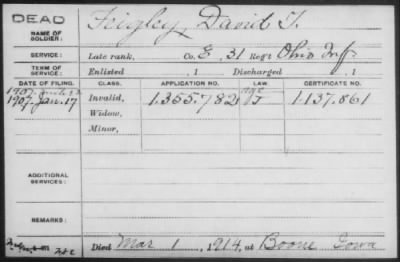 DEAD
NAME OF SOLDIER: Feigley, David T.
SERVICE: Late rank, Co. E, 31 Reg't Ohio Inf
TERM OF SERVICE: Enlisted , 1 Discharged , 1
DATE OF FILING. CLASS. APPLICATION NO. LAW. CERTIFICATE NO.
1907. Jan. 17 Invalid, 1.355.782 1.137.861
Widow,
Minor,
ADDITIONAL SERVICES:
REMARKS:
Died Mar 1, 1914, at Boone Iowa